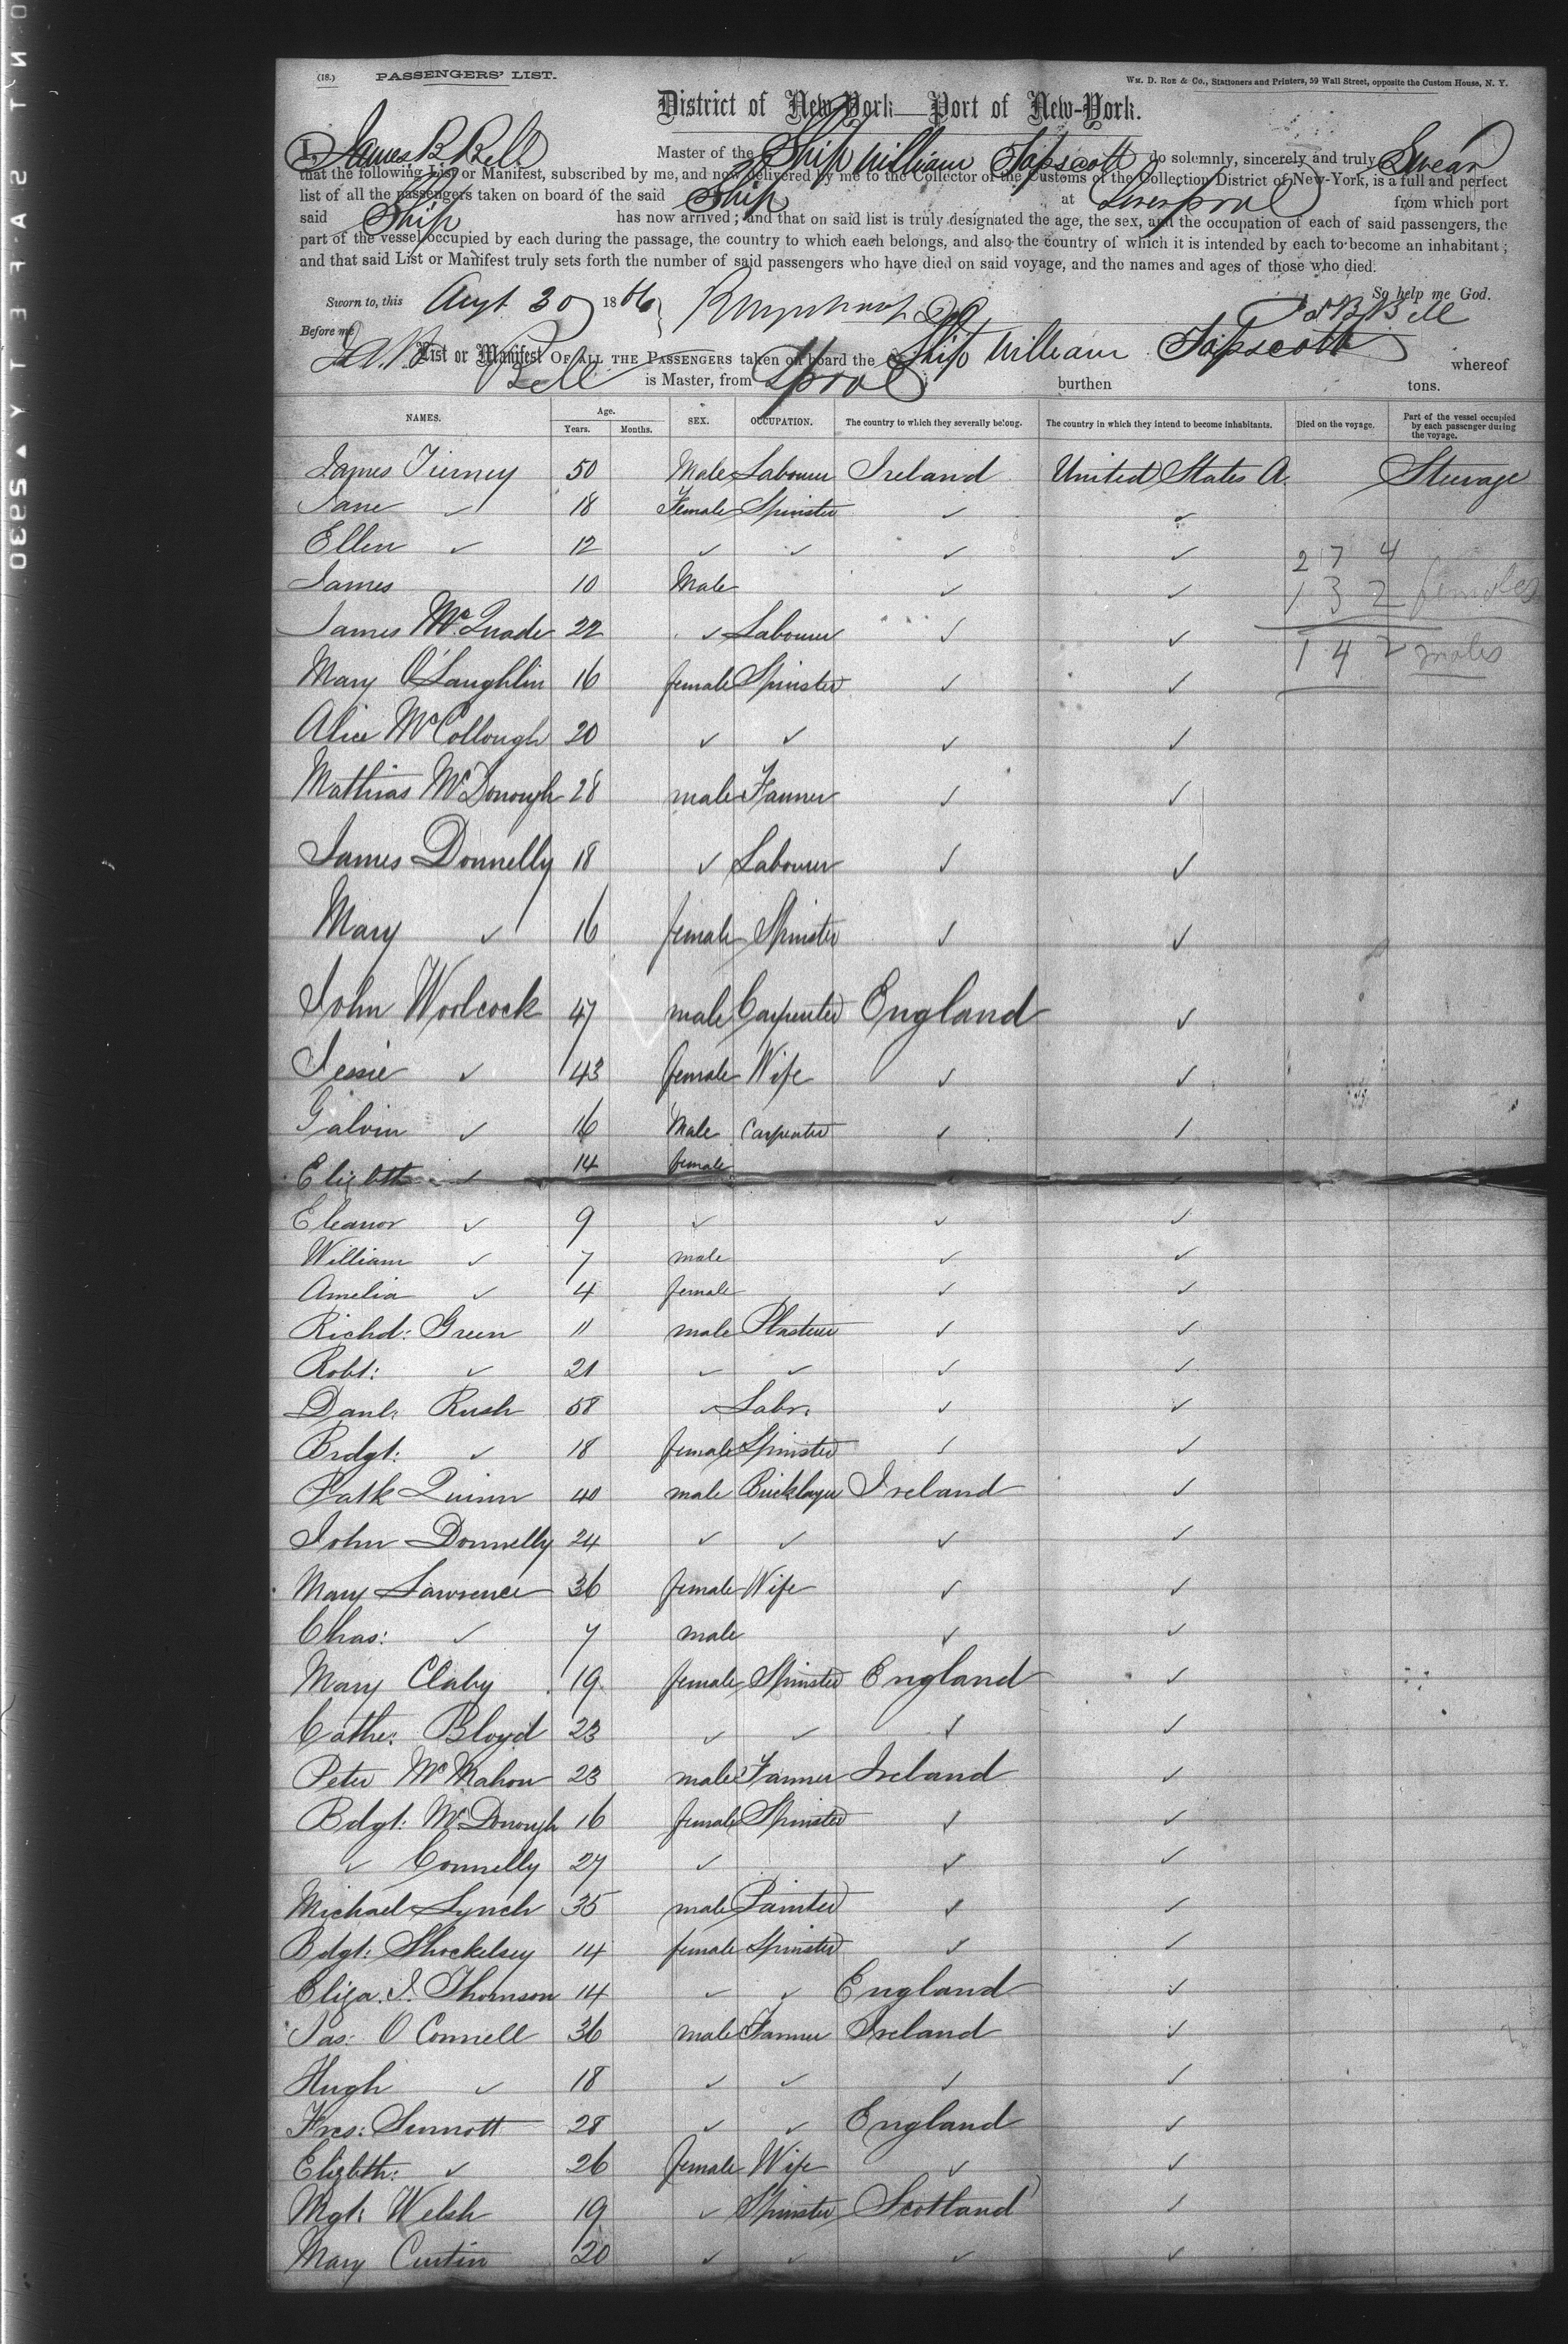 (18.) PASSENGERS' LIST. WM. D. ROE & CO., Stationers and Printers, 59 Wall Street, opposite the Custom House, N. Y.
District of New-York—Port of New-York.
I, James B. Bell Master of the Ship William Tapscott do solemnly, sincerely and truly Swear
that the following List or Manifest, subscribed by me, and now delivered by me to the Collector of the Customs of the Collection District of New-York, is a full and perfect
list of all the passengers taken on board of the said Ship at Liverpool from which port
said Ship has now arrived; and that on said list is truly designated the age, the sex, and the occupation of each of said passengers, the
part of the vessel occupied by each during the passage, the country to which each belongs, and also the country of which it is intended by each to become an inhabitant;
and that said List or Manifest truly sets forth the number of said passengers who have died on said voyage, and the names and ages of those who died.
Sworn to, this Augt 30 1866 So help me God.
Before me J. B. Bell
List or Manifest OF ALL THE PASSENGERS taken on board the Ship William Tapscott whereof
Bell is Master, from Lpool burthen tons.
NAMES. Age. Years. Months. SEX. OCCUPATION. The country to which they severally belong. The country in which they intend to become inhabitants. Died on the voyage. Part of the vessel occupied by each passenger during the voyage.
James Tierney 50 Male Labourer Ireland United States A. Steerage
Jane ✓ 18 Female Spinster ✓ ✓
Ellen ✓ 12 ✓ ✓ ✓ ✓ 274
James 10 Male ✓ ✓ 132 females
James McQuade 22 ✓ Labourer ✓ ✓ 142 males
Mary O'Laughlin 16 female Spinster ✓ ✓
Alice McCollough 20 ✓ ✓ ✓ ✓
Mathias McDonough 28 male Farmer ✓ ✓
James Donnelly 18 ✓ Labourer ✓ ✓
Mary ✓ 16 female Spinster ✓ ✓
John Woolcock 47 male Carpenter England ✓
Jessie ✓ 43 female Wife ✓ ✓
Galvin ✓ 16 Male Carpenter ✓ ✓
Elizbth ✓ 14 female
Eleanor ✓ 9 ✓ ✓ ✓
William ✓ 7 male ✓ ✓
Amelia ✓ 4 female ✓ ✓
Richd: Green 11 male Plasterer ✓ ✓
Robt: ✓ 21 ✓ ✓ ✓ ✓
Danl: Rush 58 ✓ Labr. ✓ ✓
Brdgt: ✓ 18 female Spinster ✓ ✓
Patk Quinn 40 male Bricklayer Ireland ✓
John Donnelly 24 ✓ ✓ ✓ ✓
Mary Lawrence 36 female Wife ✓ ✓
Chas: ✓ 7 male ✓ ✓
Mary Claby 19 female Spinster England ✓
Cathe: Bloyd 23 ✓ ✓ ✓ ✓
Peter McMahon 23 male Farmer Ireland ✓
Bdgt: McDonough 16 female Spinster ✓ ✓
✓ Connelly 27 ✓ ✓ ✓
Michael Lynch 35 male Painter ✓ ✓
Bdgt: Shockelsey 14 female Spinster ✓ ✓
Eliza. J. Thomson 14 ✓ ✓ England ✓
Jas: O Connell 36 male Farmer Ireland ✓
Hugh ✓ 18 ✓ ✓ ✓ ✓
Frcs: Sinnott 28 ✓ ✓ England ✓
Elizbth: ✓ 26 female Wife ✓ ✓
Mgt: Welsh 19 ✓ Spinster Scotland ✓
Mary Curtin 20 ✓ ✓ ✓ ✓